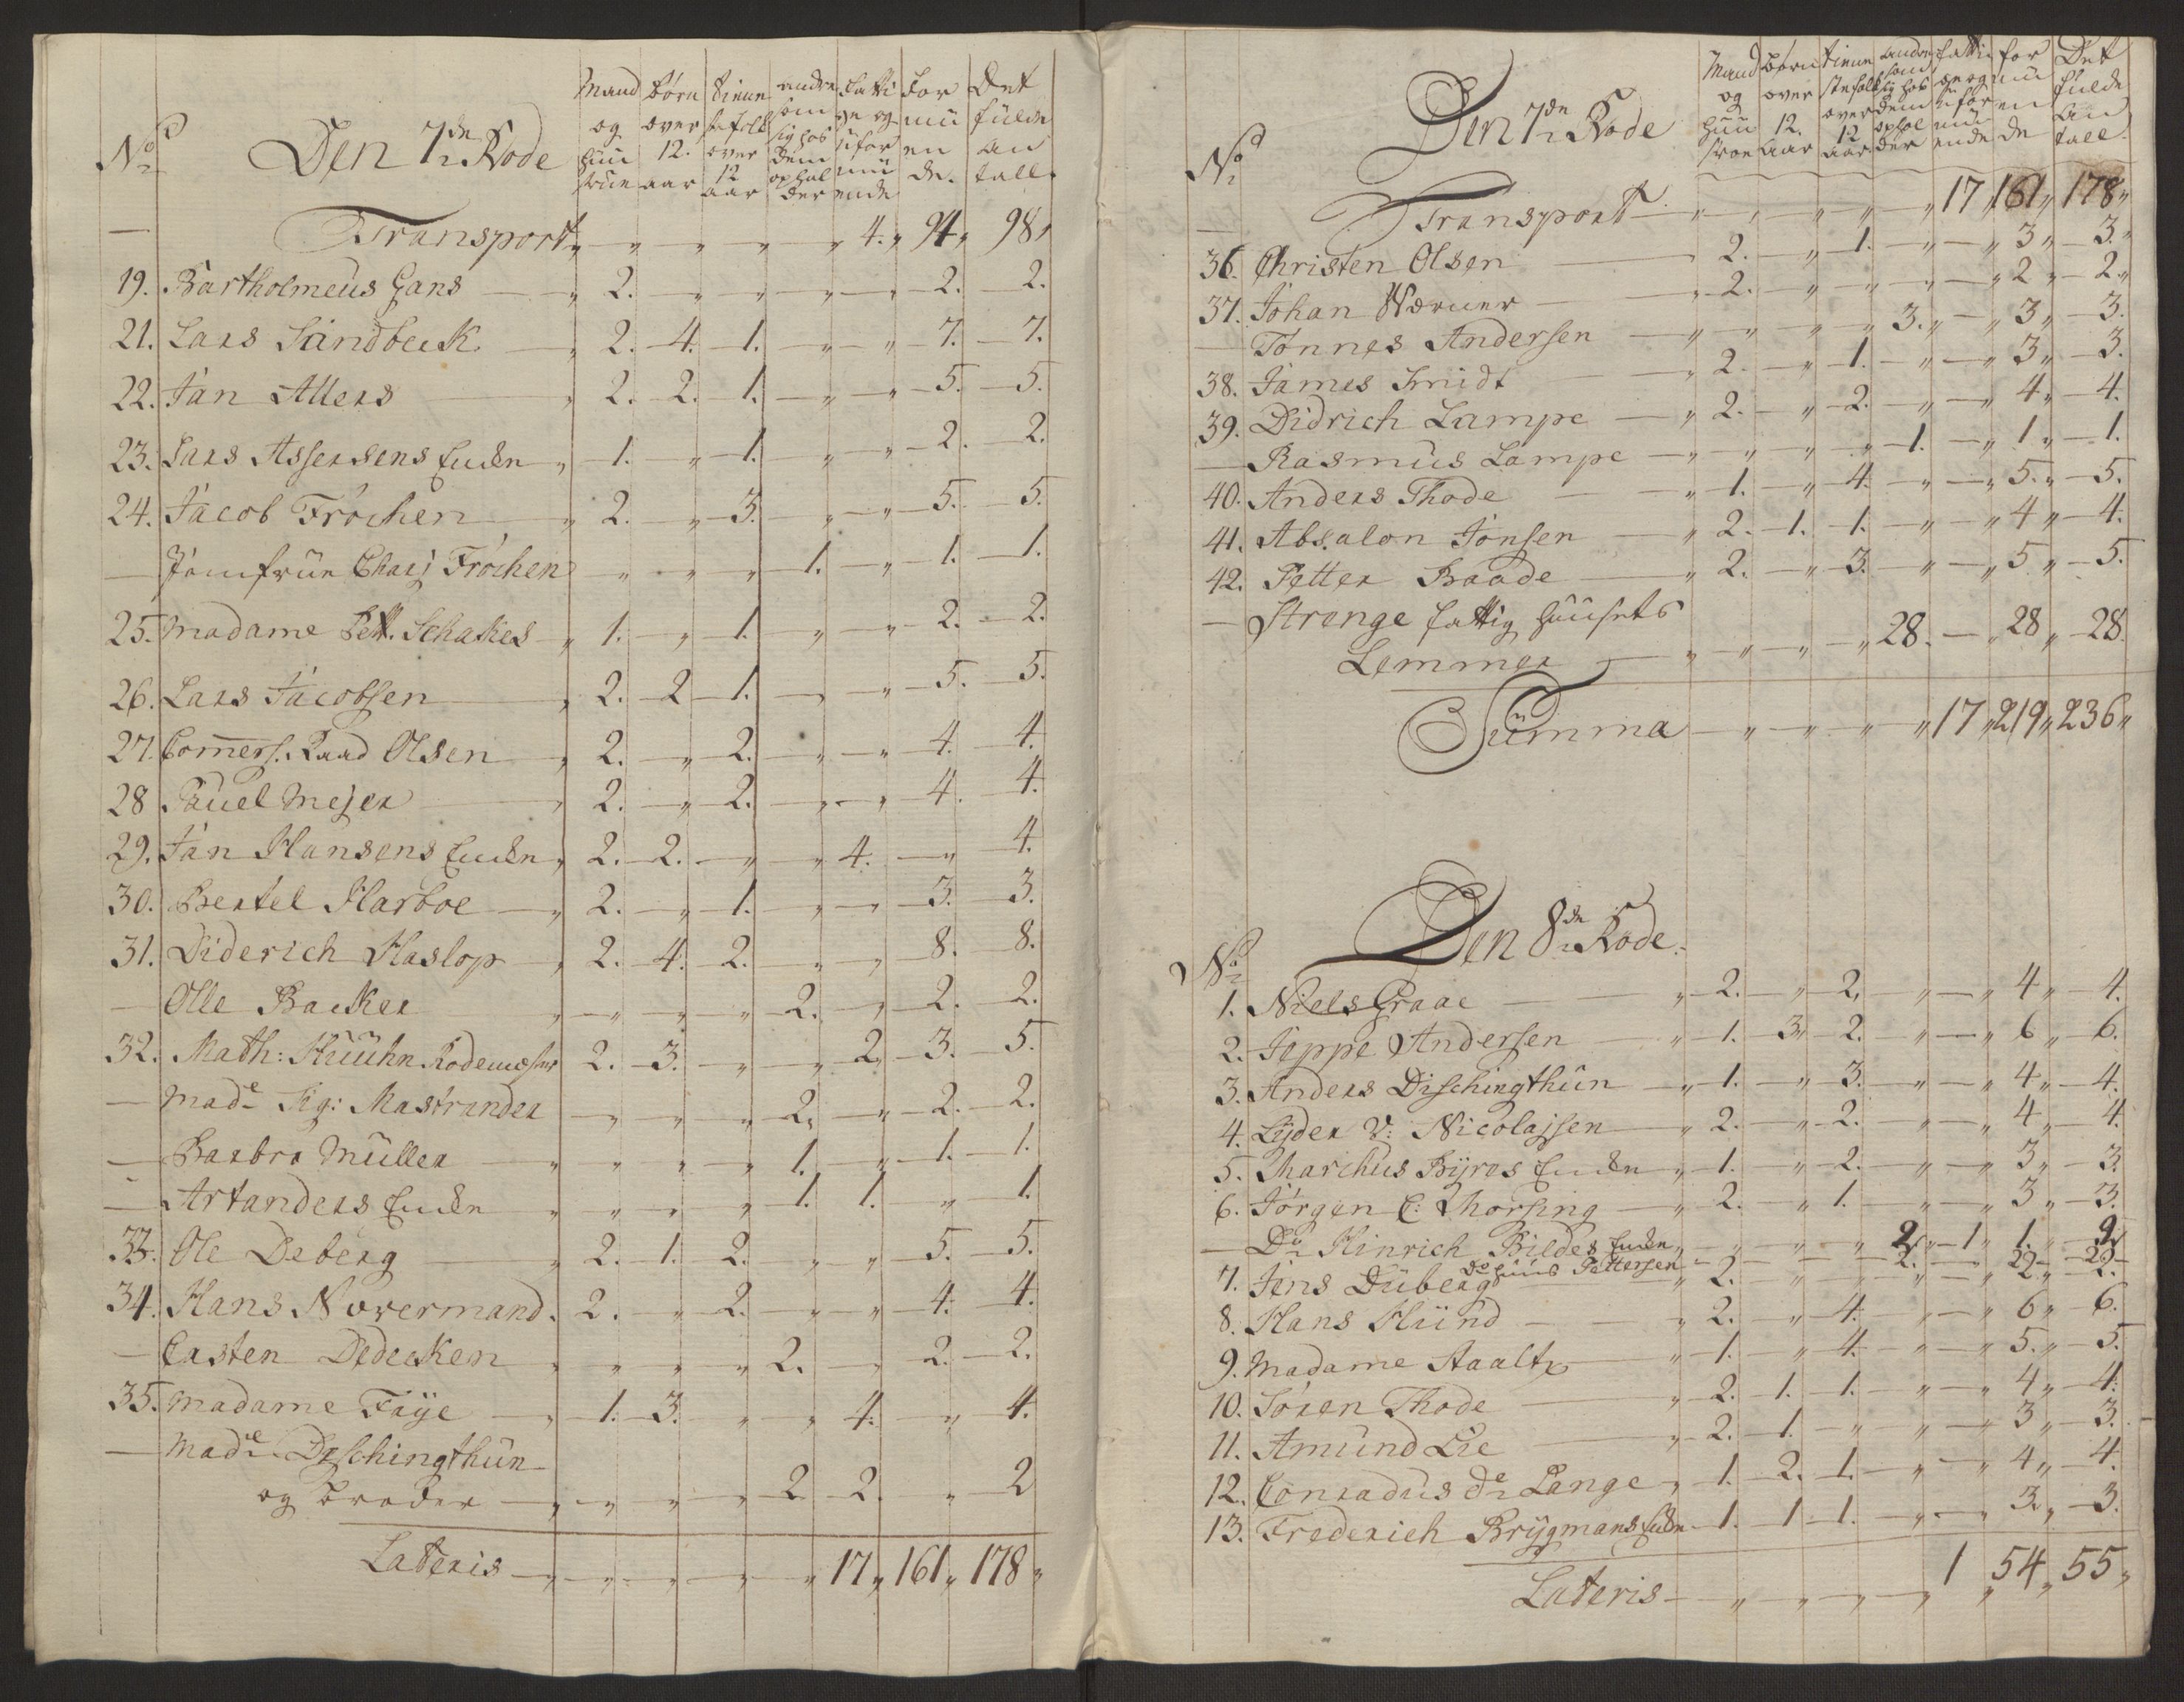 No Den 7de Rode Mand og huustrue børn over 12. aar tienestefolk over 12 aar andre som sig hos dem opholder fattige og uformuende Formuende. Det fulde antall.
— Transport „ „ „ „ 4. „ 94 „ 98 „
19. Bartholmeus Gans — „ 2. „ „ „ „ 2. 2.
21. Lars Sandbeck — „ 2. 4. 1. „ „ 7. 7.
22. Jan Allers „ 2. 2. 1. „ „ 5. 5.
23. Lars Assersens Enke „ 1. „ 1. „ „ 2. 2.
24. Jacob Fröchen „ 2. „ 3. „ „ 5. 5.
— Jomfrue Chaij Fröchen „ „ „ 1. „ 1. 1.
25. Madame Pett. Schakes „ 1. „ 1. „ „ 2. 2.
26. Lars Jacobsen „ 2. 2 1. „ „ 5. 5.
27. Comers. Raad Olsen „ 2. „ 2. „ „ 4. 4.
28 Pauel Mejer „ 2. „ 2. „ „ 4. 4.
29. Jan Hansens Enke „ 2. 2. „ „ 4. „ 4.
30. Bertel Harboe „ 2. „ 1. „ „ 3. 3.
31. Diderich Haslop „ 2. 4. 2. „ „ 8. 8.
— Olle Backer „ „ „ 2. „ 2. 2.
32. Math: Kuuhn Rodemester 2. 3. „ „ 2. 3. 5.
— Made Sig: Mastrander „ „ „ 2. „ 2. 2.
— Barbra Müller „ „ „ „ 1. „ 1. 1.
— Artanders Enke „ „ „ „ 1. 1. „ 1.
33. Ole Deberg „ 2. 1. 2. „ „ 5. 5.
34. Hans Novermand. 2. „ 2. „ „ 4. 4.
— Casten Dedecken „ „ „ „ 2. „ 2. 2.
35. Madame Fåÿe „ 1. 3. „ „ 4. „ 4.
— Made Dischingthun
og broder „ „ „ „ 2 2. „ 2
Lateris „ „ „ „ „ 17 „ 161 „ 178 „
No Den 7de Rode Mand og huustroe Børn over 12. aar tienestefolk over 12 aar andre som sig hos dem opholder fattige og uformuende formuende Det fulde antall
— Transport „ „ „ „ „ 17 „ 161 „ 178 „
36. Christen Olsen 2. „ 1. „ „ 3 „ 3. „
37. Johan Wærner „ 2. „ „ „ „ 2 „ 2. „
— Tönnes Andersen „ „ „ „ 3. „ „ 3 „ 3.
38. James Smidt „ 2. „ 1. „ „ 3 „ 3.
39. Didrich Lampe „ 2. „ 2. „ „ 4 „ 4.
— Rasmus Lampe „ „ „ „ 1. „ 1 „ 1.
40. Anders Thode „ 1. „ 4. „ „ 5. „ 5.
41. Absalon Jonsen „ 2. 1. 1. „ „ 4 „ 4.
42. Petter Baade „ 2. „ 3. „ „ 5 „ 5.
— Strenge fattig huusets
Lemmer „ „ „ „ 28. „ 28 „ 28.
Summa „ „ „ „ 17 „ 219 „ 236 „
Den 8de Rode.
No
1. Niels Graae „ 2. „ 2. „ „ 4 „ 4.
2. Jeppe Andersen „ 1. 3 „ 2. „ „ 6 „ 6.
3. Anders Dischingthun „ 1. „ 3. „ „ 4 „ 4.
4. Lÿder V: Nicolajsen „ 2. „ 2. „ „ 4 „ 4.
5. Marchus Bÿros Enke „ 1. „ 2. „ „ 3 „ 3.
6. Jörgen C: Thorsing „ 2. „ 1. „ „ 3 „ 3.
— Do Hinrich Bildes Enke „ „ „ „ 2. „ 1 1. 2
Do huus Pettersen „ 2. „ 2 2
7. Jens Duberg „ 2. „ „ „ „ 2 „ 2.
8. Hans Hund „ 2. „ 4. „ „ 6 „ 6.
9. Madame Staaltz „ 1. „ 4. „ „ 5. „ 5.
10. Sören Thode „ 2. 1. 1. „ „ 4 „ 4.
11. Amund Lie „ 2. 1. „ „ „ 3 „ 3.
12. Conradus de Lange „ 1. 2. 1. „ „ 4 „ 4.
13. Frederich Brÿgmans Enke 1. 1. 1. „ „ 3. „ 3.
Lateris „ „ „ „ 1 „ 54 „ 55 „